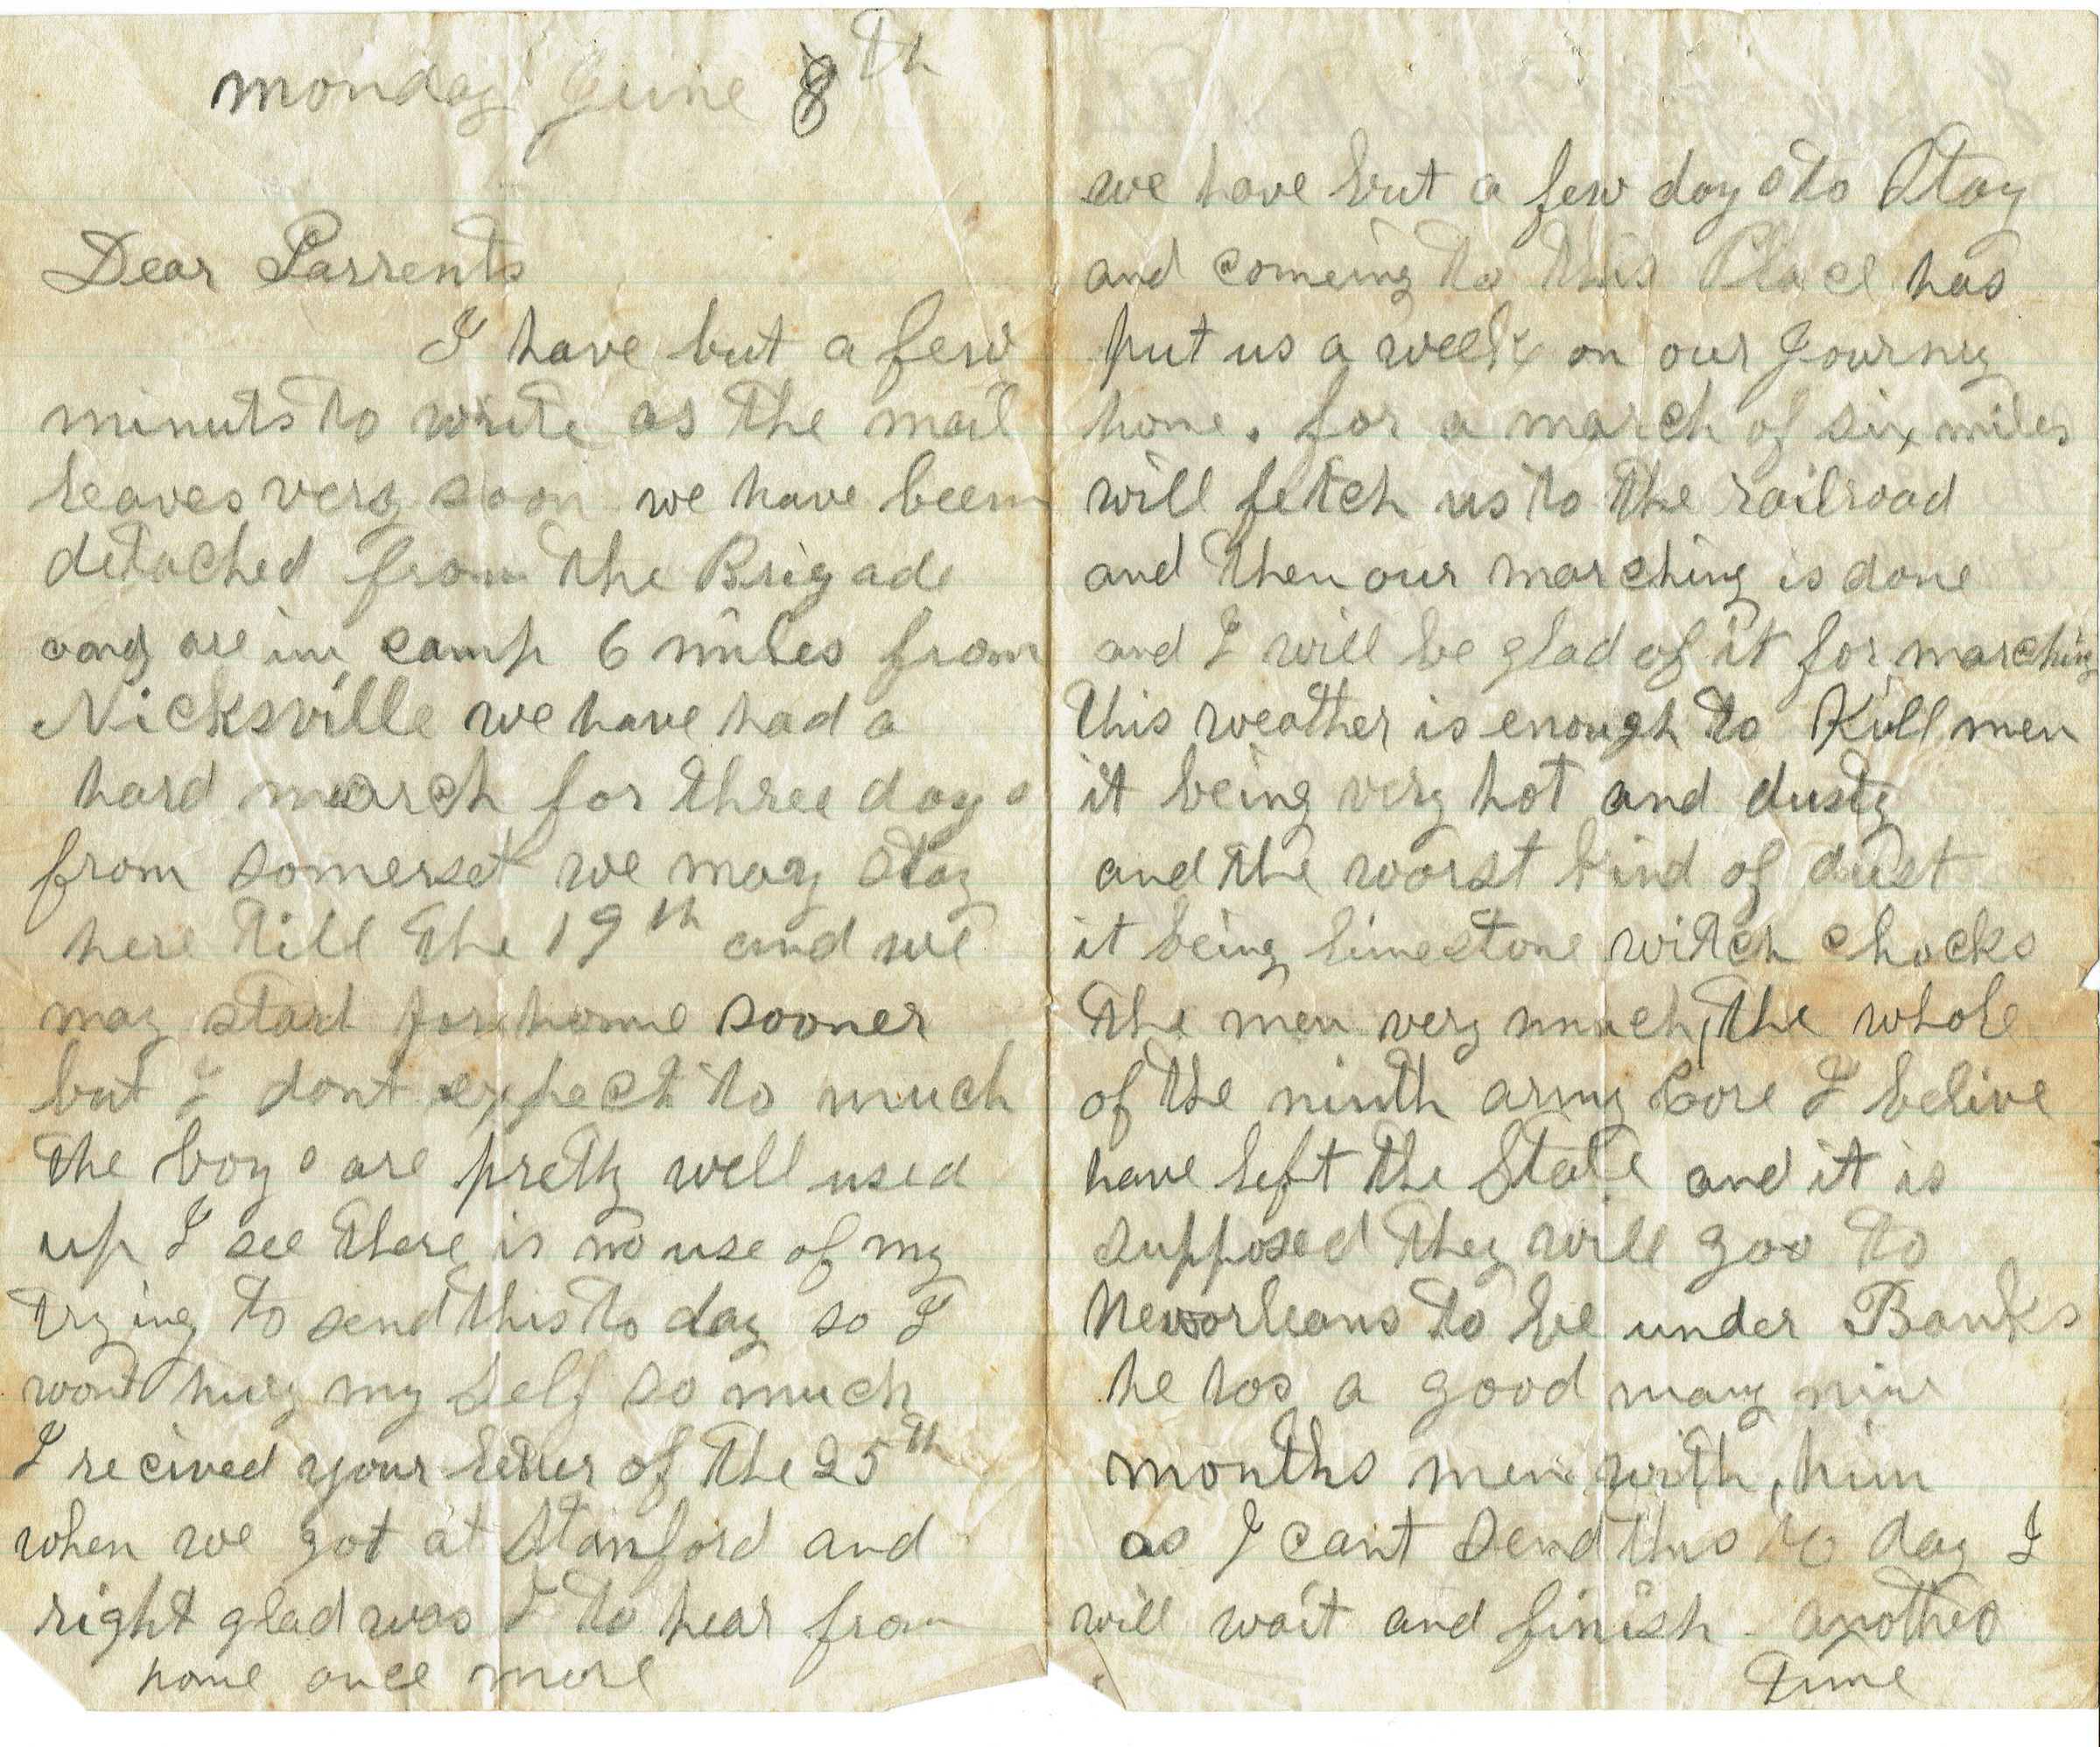 monday June 8th
Dear Parrents
I have but a few
minuts to write as the mail
leaves very soon we have been
detached from the Brigade
and are in camp 6 miles from
Nicksville we have had a
hard march for three days
from somerset we may stay
here till the 19th and we
may start for home sooner
but I dont expect to much
the boys are pretty well used
up I see there is no use of my
trying to send this to day so I
wont hury my self so much
I recived your letter of the 25th
when we got at Stanford and
right glad was I to hear from
home once more
we have but a few days to Stay
and comeing to this Place has
put us a week on our Journey
home. for a march of six miles
will fetch us to the railroad
and then our marching is done
and I will be glad of it for marching
this weather is enough to Kill men
it being very hot and dusty
and the worst kind of dust
it being limestone witch chocks
the men very much, the whole
of the ninth army Core I belive
have left the State and it is
supposed they will goo to
Neworleans to be under Banks
he has a good many nine
months men with him
as I cant send this to day I
will wait and finish another
time